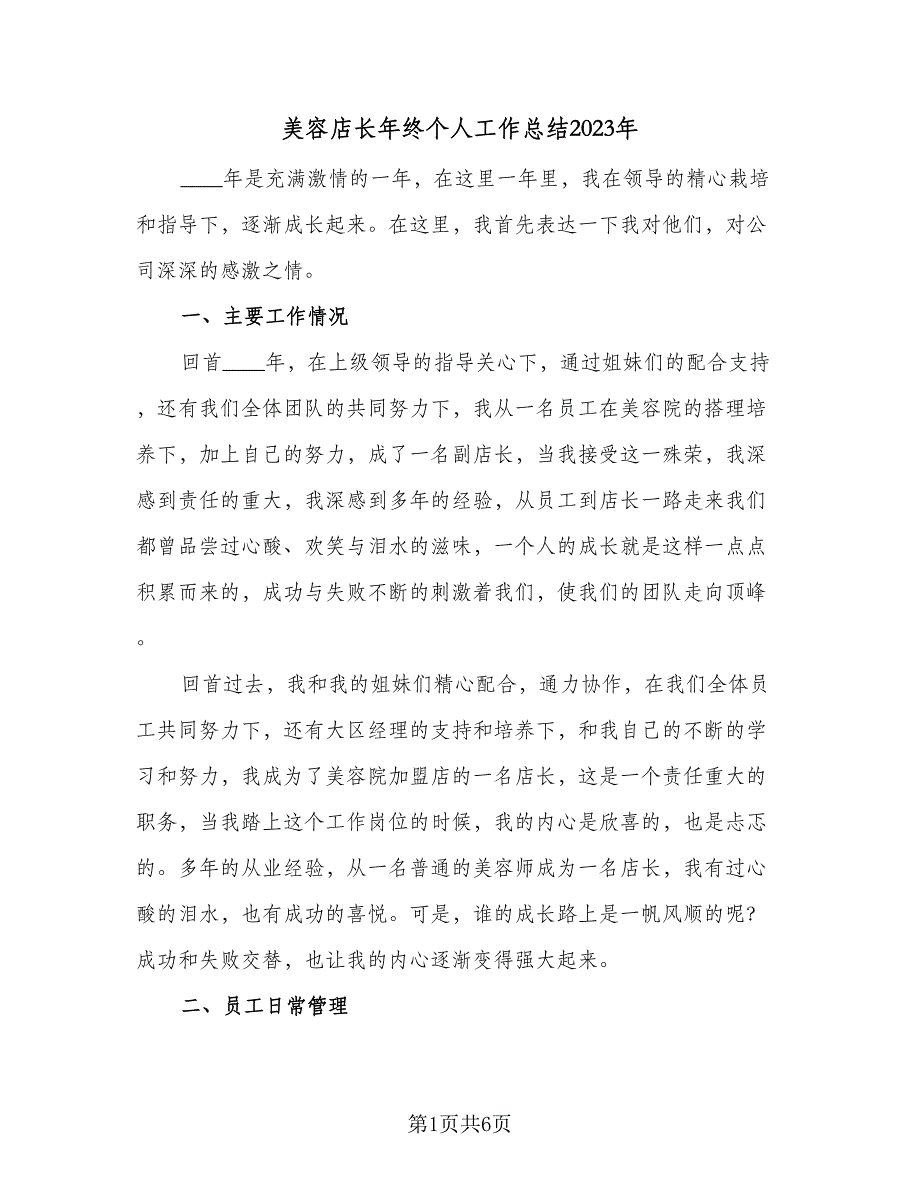 美容店长年终个人工作总结2023年
____年是充满激情的一年，在这里一年里，我在领导的精心栽培
和指导下，逐渐成长起来。在这里，我首先表达一下我对他们，对公
司深深的感激之情。
一、主要工作情况
回首____年，在上级领导的指导关心下，通过姐妹们的配合支持
，还有我们全体团队的共同努力下，我从一名员工在美容院的搭理培
养下，加上自己的努力，成了一名副店长，当我接受这一殊荣，我深
感到责任的重大，我深感到多年的经验，从员工到店长一路走来我们
都曾品尝过心酸、欢笑与泪水的滋味，一个人的成长就是这样一点点
积累而来的，成功与失败不断的刺激着我们，使我们的团队走向顶峰
。
回首过去，我和我的姐妹们精心配合，通力协作，在我们全体员
工共同努力下，还有大区经理的支持和培养下，和我自己的不断的学
习和努力，我成为了美容院加盟店的一名店长，这是一个责任重大的
职务，当我踏上这个工作岗位的时候，我的内心是欣喜的，也是忐忑
的。多年的从业经验，从一名普通的美容师成为一名店长，我有过心
酸的泪水，也有成功的喜悦。可是，谁的成长路上是一帆风顺的呢？
成功和失败交替，也让我的内心逐渐变得强大起来。
二、员工日常管理
第1页共6页